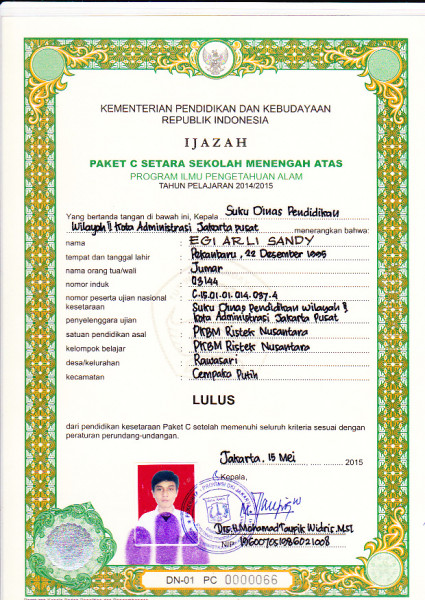 KEMENTERIAN PENDIDIKAN DAN KEBUDAYAAN
REPUBLIK INDONESIA
IJAZAH
PAKET C SETARA SEKOLAH MENENGAH ATAS
PROGRAM ILMU PENGETAHUAN ALAM
TAHUN PELAJARAN 2014/2015
Yang bertanda tangan di bawah ini, Kepala Suku Dinas Pendidikan
Wilayah II Kota Administrasi Jakarta Pusat menerangkan bahwa:
nama : EGI ARLI SANDY
tempat dan tanggal lahir : Pekanbaru, 22 Desember 1995
nama orang tua/wali : Jumar
nomor induk : 03144
nomor peserta ujian nasional : C-15.01.01.014.037.4
kesetaraan : Suku Dinas Pendidikan Wilayah II
penyelenggara ujian : Kota Administrasi Jakarta Pusat
satuan pendidikan asal : PKBM Ristek Nusantara
kelompok belajar : PKBM Ristek Nusantara
desa/kelurahan : Rawasari
kecamatan : Cempaka Putih
LULUS
dari pendidikan kesetaraan Paket C setelah memenuhi seluruh kriteria sesuai dengan
peraturan perundang-undangan.
Jakarta, 15 Mei 2015
Kepala,
Drs.H.Mohamad Taupik Widris, MSi
NIP. 196007051986021008
DN-01 PC 0000066